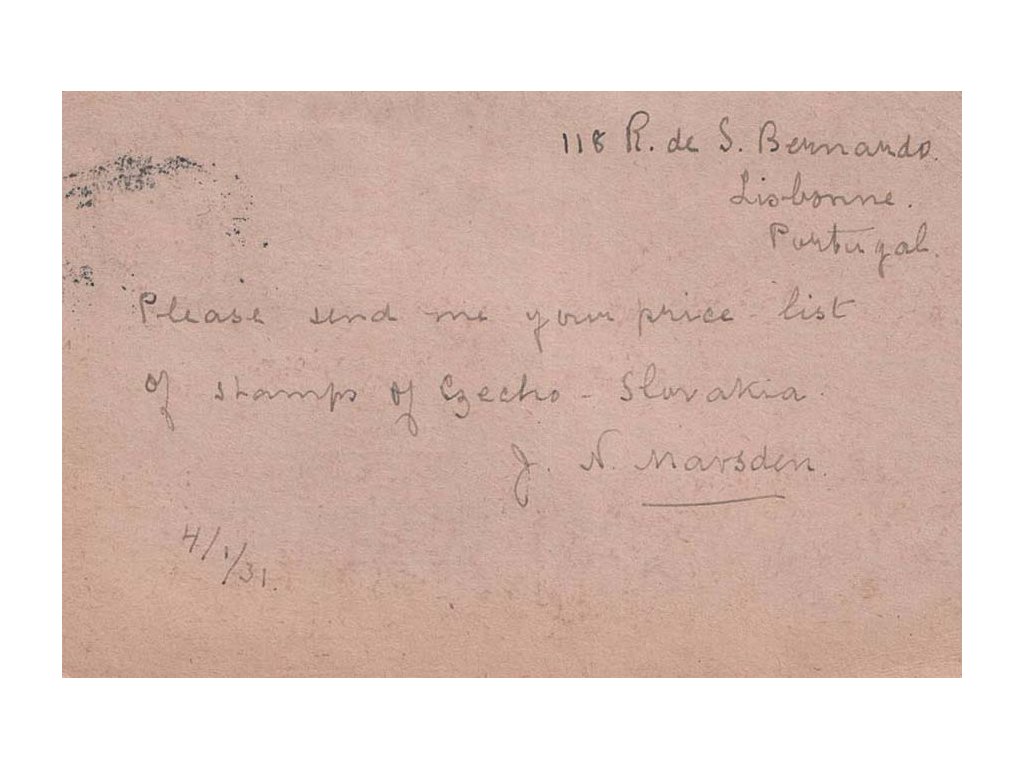 118 R. de S. Bernardo.
Lisbonne.
Portugal.
Please send me your price list
of stamps of Czecho-Slovakia.
J. N. Marsden.
4/1/31.